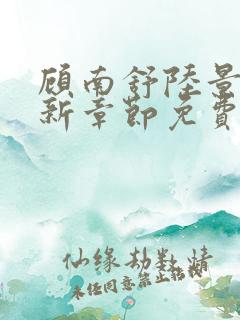 顾南舒陆景
新章节免费
仙缘劫数情
未经同意禁止转载